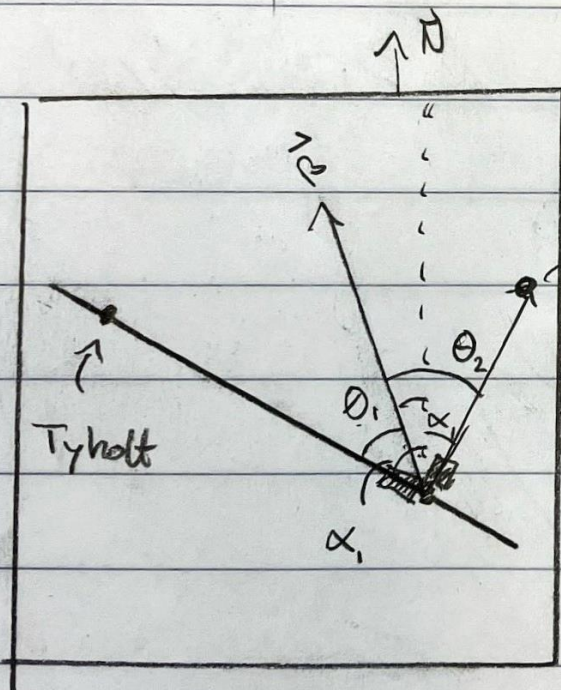 N
B
θ₂
θ₁
α
Tyholt
α₁